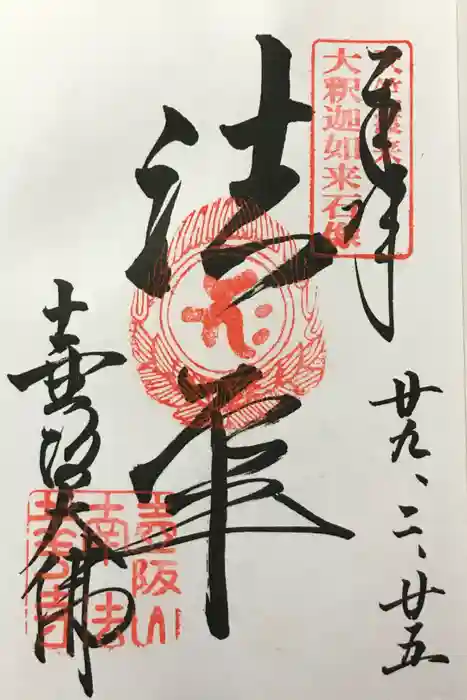 奉拝
天竺渡来
大釈迦如来石像
廿九、二、廿五
法華
壷阪大佛
壷阪山
南法
華寺